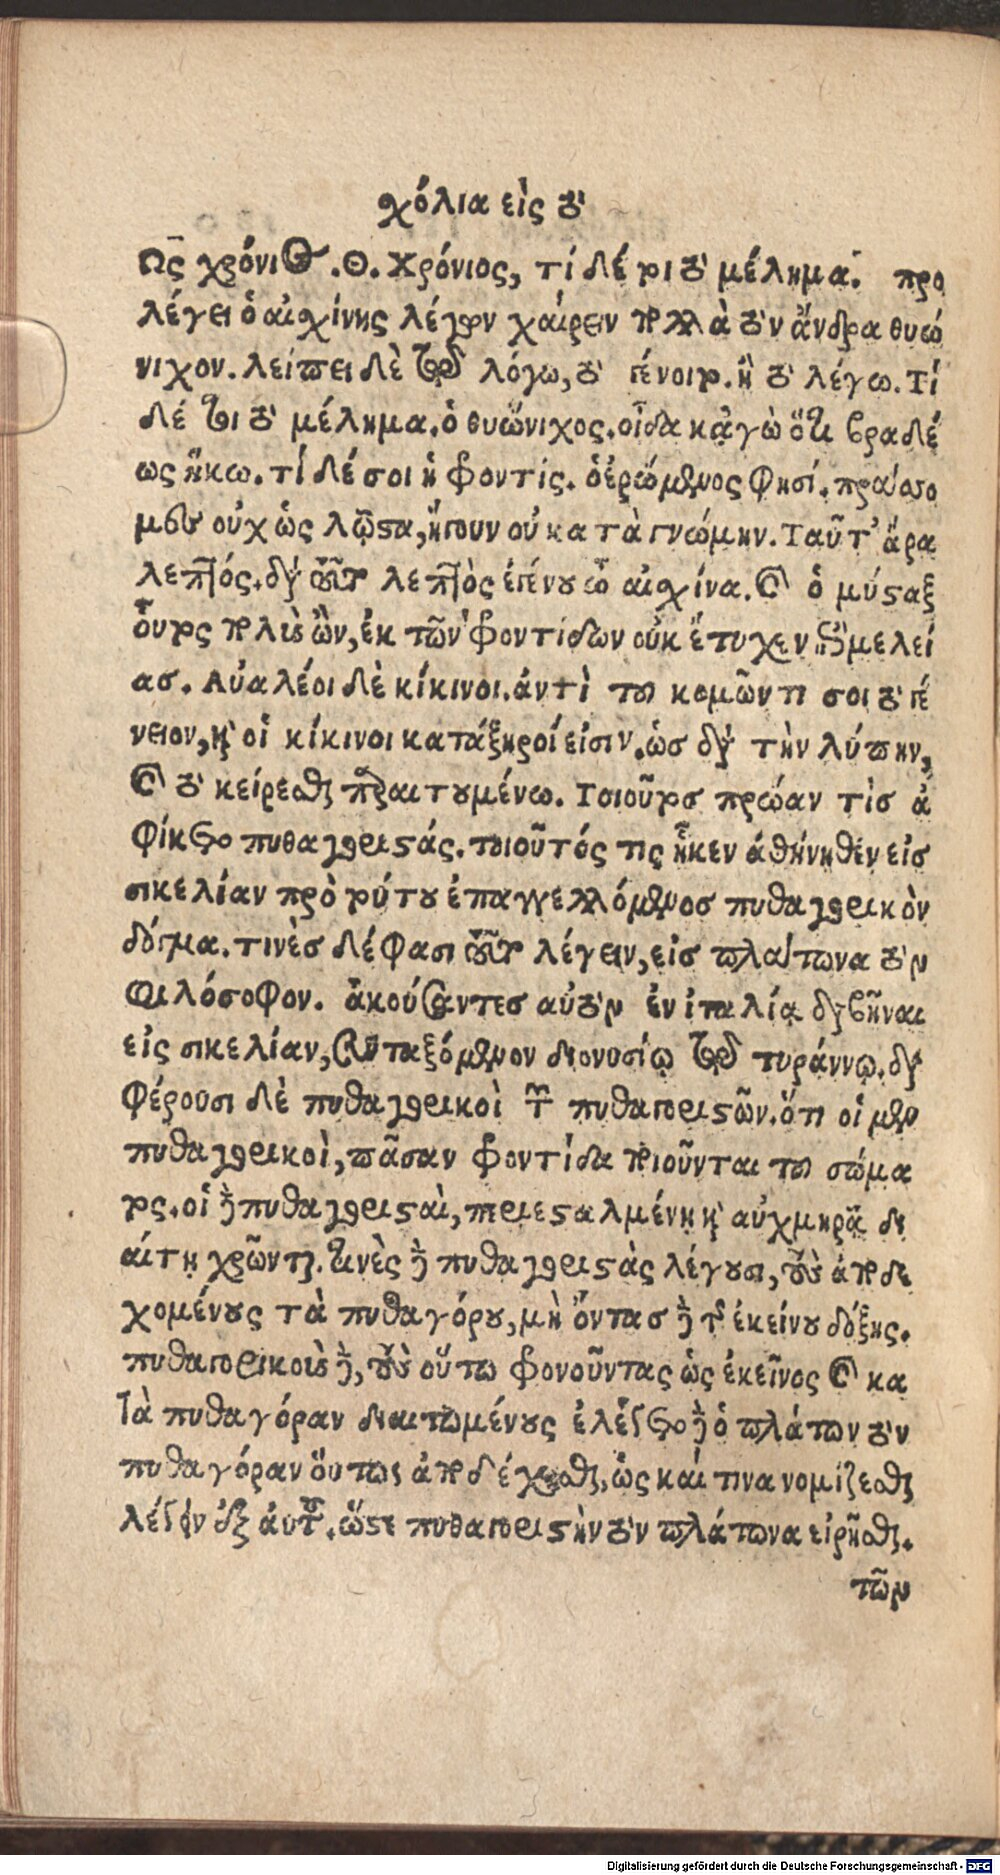 χόλια εἰς τὸ
Ὡς χρόνιος. Θ. Χρόνιος, τί δέ τοι τὸ μέλημα. προ
λέγει ὁ αἰσχίνης λέγων χαίρειν πολλὰ τὸν ἄνδρα θυώ
νιχον. λείπει δὲ τῷ λόγω, τὸ γένοιτο. ἢ τὸ λέγω. Τί
δέ τοι τὸ μέλημα. ὁ θυώνιχος. οἶδα κἀγὼ ὅτι βραδέ
ως ἥκω. τί δέ σοι ἡ φροντίς. ὁ ἐρώμενος φησί. πράσσο
μεν οὐχ ὡς λῷστα, ἤγουν οὐ κατὰ γνώμην. Ταῦτ' ἄρα
λεπτός. διὰ τοῦτο λεπτὸς ἐγένου ὦ αἰσχίνα. καὶ ὁ μύσταξ
οὗτος πολὺς ὢν, ἐκ τῶν φροντίδων οὐκ ἔτυχεν ἐπιμελεί
ασ. Αὐαλέοι δὲ κίκινοι. ἀντὶ τοῦ κομῶντι σοι τὸ γέ
νειον, καὶ οἱ κίκινοι κατάξηροί εἰσιν. ὡσ διὰ τὴν λύπην,
καὶ τὸ κείρεσθαι παραιτουμένω. Τοιοῦτοσ πρώαν τὶσ ἀ
φίκετο πυθαγοριστάς. τοιοῦτός τις ἧκεν ἀθήνηθεν εἰσ
σικελίαν πρὸ τούτου ἐπαγγελλόμενοσ πυθαγορικὸν
δόγμα. τινὲσ δέ φασι τοῦτο λέγειν, εἰσ πλάτωνα τὸν
φιλόσοφον. ἀκούσαντεσ αὐτὸν ἐν ἰταλία διαβῆναι
εἰς σικελίαν, συνταξόμενον διονυσίῳ τῷ τυράννῳ. δια
φέρουσι δὲ πυθαγορικοὶ τῶν πυθαγοριστῶν. ὅτι οἱ μὲν
πυθαγορικοὶ, πᾶσαν φροντίδα ποιοῦνται τοῦ σώμα
τος. οἱ δὲ πυθαγορισταὶ, περιεσταλμένη καὶ αὐχμηρᾷ δι
αίτη χρῶνται. τινὲς δὲ πυθαγοριστὰς λέγουσι, τοὺς ἀποδε
χομένους τὰ πυθαγόρου, μὴ ὄντασ δὲ τῆς ἐκείνου δόξης.
πυθαγορικοὺς δὲ, τοὺς οὕτω φρονοῦντας ὡς ἐκεῖνος καὶ κα
τὰ πυθαγόραν διαιτωμένους ἐλέγετο δὲ ὁ πλάτων τὸν
πυθαγόραν οὕτως ἀποδέχεσθαι, ὡς καί τινα νομίζεσθαι
λέγειν ἐξ αὐτοῦ. ὥστε πυθαγοριστὴν τὸν πλάτωνα εἰρῆσθαι.
τῶν
Digitalisierung gefördert durch die Deutsche Forschungsgemeinschaft - DFG